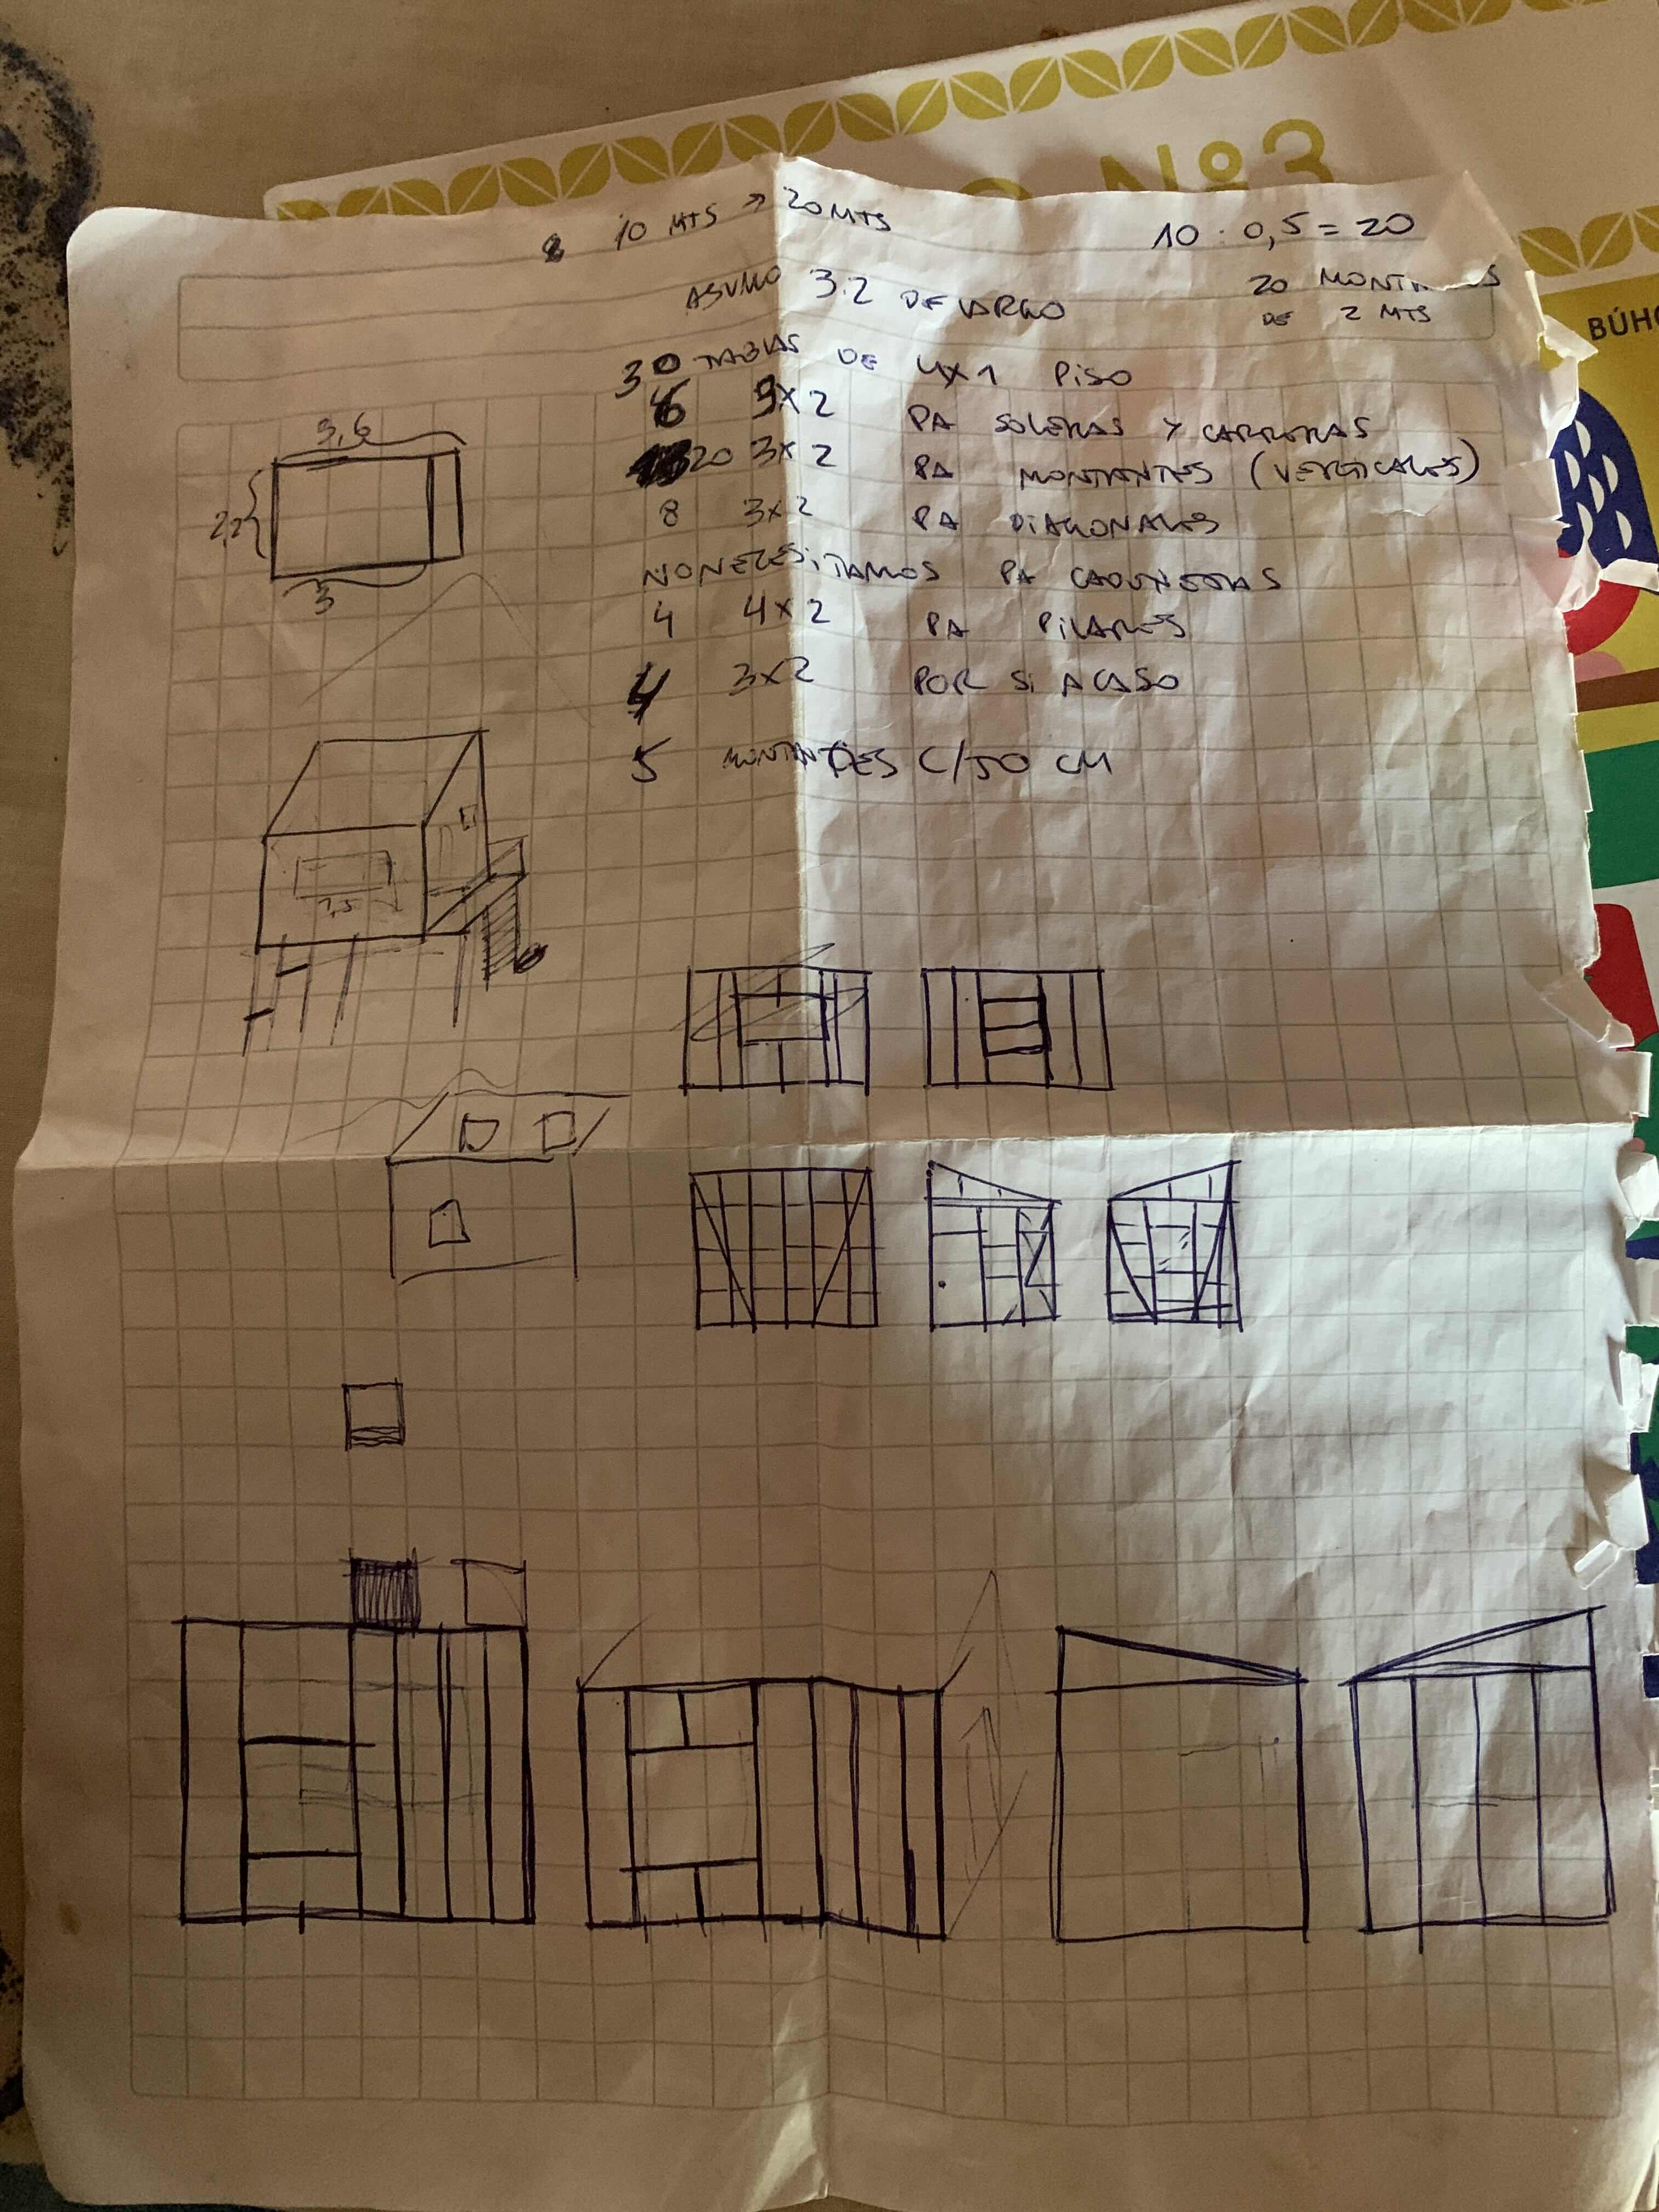 Nº3
BÚHO
10 MTS → 20 MTS
10 : 0,5 = 20
ASUMO 3.2 DE LARGO
20
DE 2 MTS
30 TABLAS DE 4X1 PISO
6 3X2 PA SOLERAS Y CARRERAS
20 3X2 PA MONTANTES (VERTICALES)
8 3X2 PA DIAGONALES
NO NECESITAMOS PA CADENETAS
4 4X2 PA PILARES
4 3X2 POR SI ACASO
5 MONTANTES C/50 CM
3,6
2,2
3
1,5